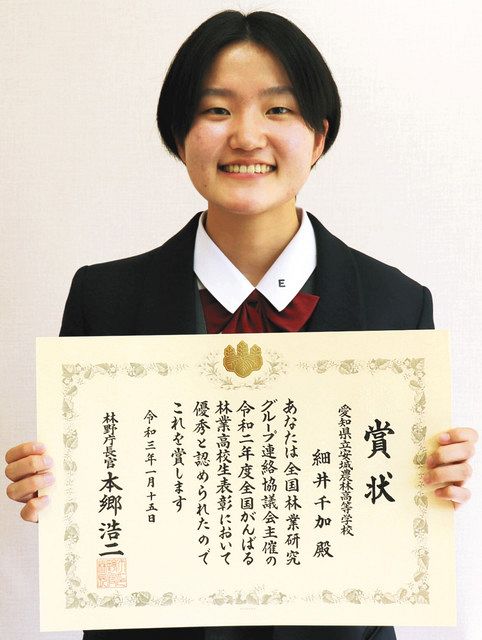 E
賞状
愛知県立安城農林高等学校
細井千加 殿
あなたは全国林業研究
グループ連絡協議会主催の
令和二年度全国がんばる
林業高校生表彰において
優秀と認められたので
これを賞します
令和三年一月十五日
林野庁長官 本郷浩二